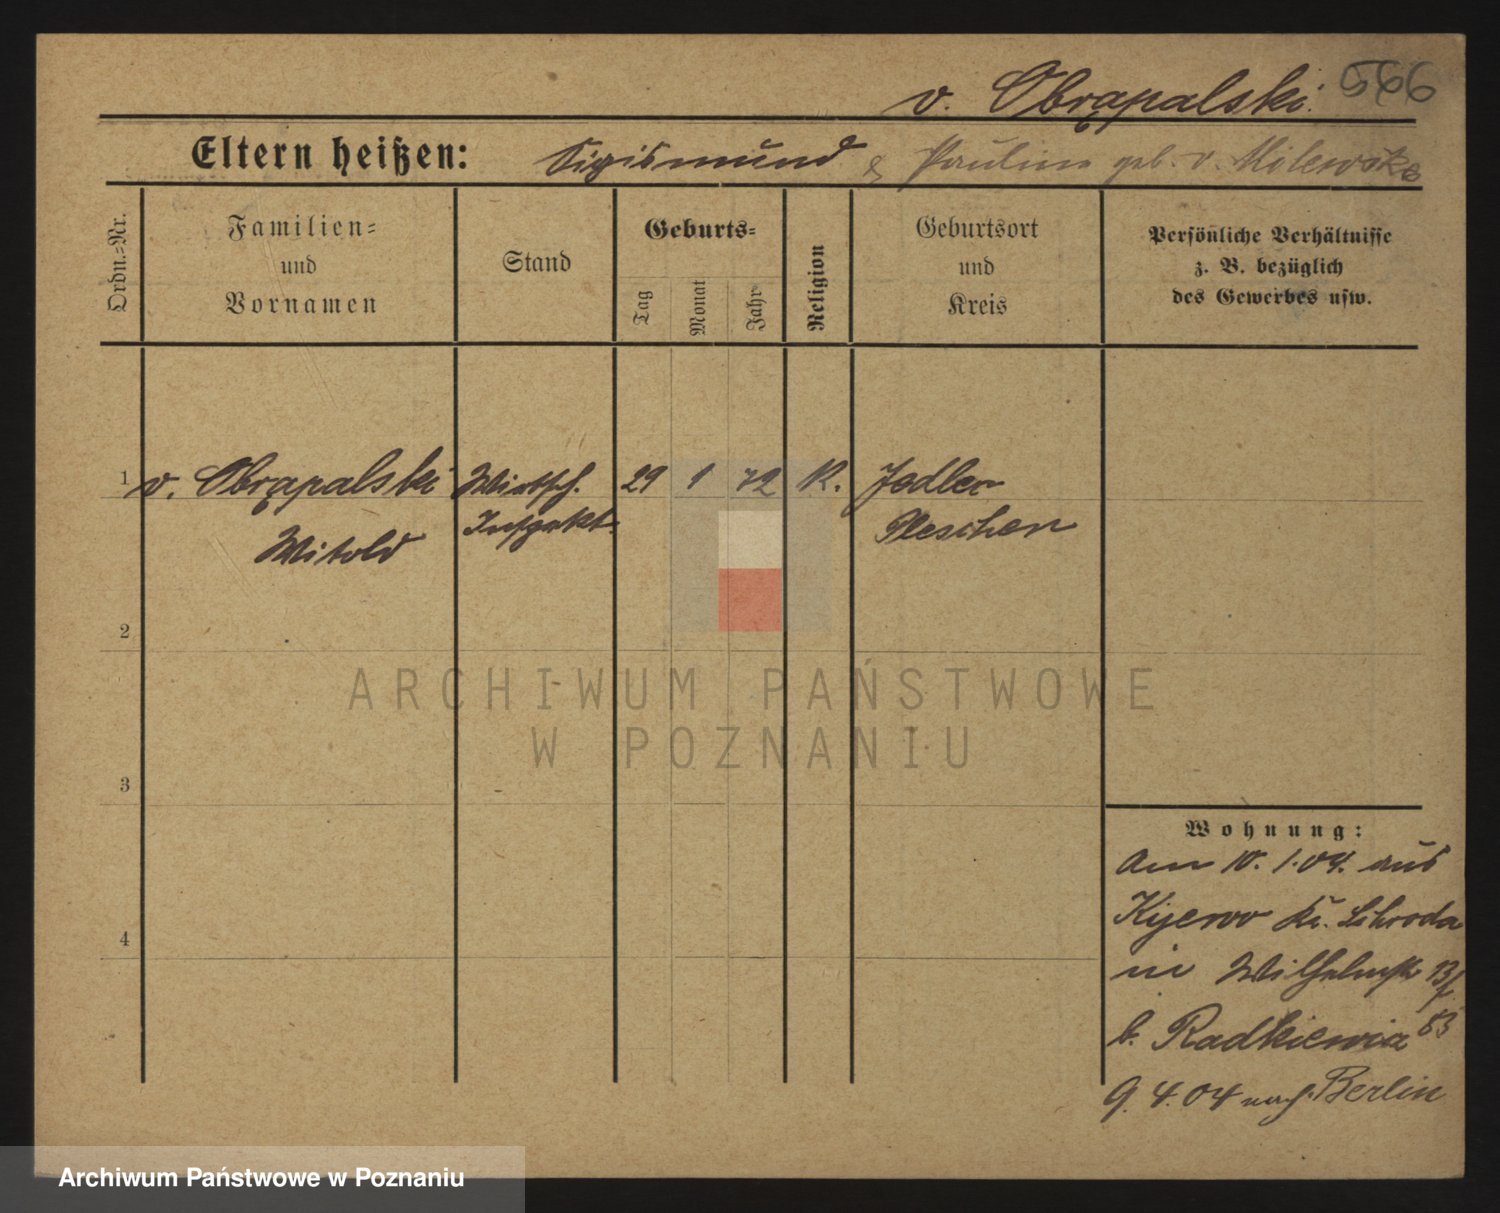 v. Obrąpalski. 566
Eltern heißen: Sigismund & Pauline geb. v. Milewska
Ordn.-Nr.
Familien-
und
Vornamen
Stand
Geburts-
Tag
Monat
Jahr
Religion
Geburtsort
und
Kreis
Persönliche Verhältnisse
z. B. bezüglich
des Gewerbes usw.
1 v. Obrąpalski Wirtsch. 29 1 72 K. Jedlec
Witold Inspekt. Pleschen
2
3
4
Wohnung:
Am 10. 1. 04. aus
Kijewo Kr. Schroda
in Wilhelmstr 13/
b. Radkiewicz
9. 4. 04 nach Berlin
ARCHIWUM PAŃSTWOWE
W POZNANIU
Archiwum Państwowe w Poznaniu